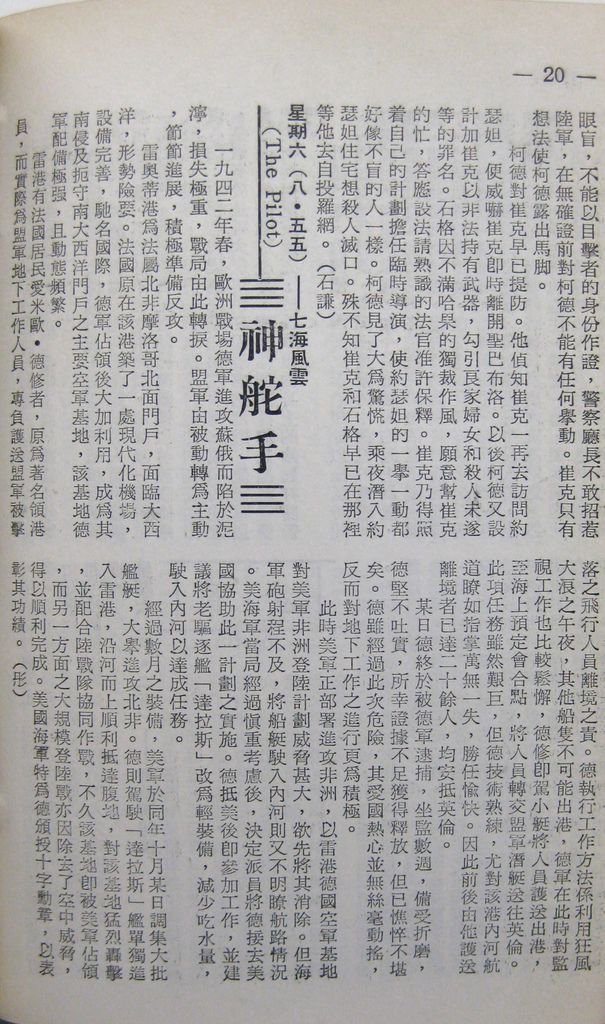 — 20 —
眼盲，不能以目擊者的身份作證，警察廳長不敢招惹
陸軍，在無確證前對柯德不能有任何舉動。崔克只有
想法使柯德露出馬脚。
柯德對崔克早已提防。他偵知崔克一再去訪問約
瑟妲，便威嚇崔克即時離開聖巴布洛。以後柯德又設
計加崔克以非法持有武器，勾引良家婦女和殺人未遂
等的罪名。石格因不滿哈杲的獨裁作風，願意幫崔克
的忙，答應設法請熟識的法官准許保釋。崔克乃得照
着自己的計劃擔任臨時導演，使約瑟妲的一舉一動都
好像不盲的人一樣。柯德見了大爲驚慌，乘夜潛入約
瑟妲住宅想殺人滅口。殊不知崔克和石格早已在那裡
等他去自投羅網。（石謙）
星期六（八・五五）——七海風雲
（The Pilot）
神舵手
一九四二年春，歐洲戰場德軍進攻蘇俄而陷於泥
濘，損失極重，戰局由此轉捩。盟軍由被動轉爲主動
，節節進展，積極準備反攻。
雷奧蒂港爲法屬北非摩洛哥北面門戶，面臨大西
洋，形勢險要。法國原在該港築了一處現代化機場，
設備完善，馳名國際，德軍佔領後大加利用，成爲其
南侵及扼守南大西洋門戶之主要空軍基地，該基地德
軍配備極强，且動態頻繁。
雷港有法國居民愛米歐・德修者，原爲著名領港
員，而實際爲盟軍地下工作人員，專負護送盟軍被擊
落之飛行人員離境之責。德執行工作方法係利用狂風
大浪之午夜，其他船隻不可能出港，德軍在此時對監
視工作也比較鬆懈，德修即駕小艇將人員護送出港，
至海上預定會合點，將人員轉交盟軍潛艇送往英倫。
此項任務雖然艱巨，但德技術熟練，尤對該港內河航
道瞭如指掌萬無一失，勝任愉快。因此前後由他護送
離境者已達二十餘人，均安抵英倫。
某日德終於被德軍逮捕，坐監數週，備受折磨，
德堅不吐實，所幸證據不足獲得釋放，但已憔悴不堪
矣。德雖經過此次危險，其愛國熱心並無絲毫動搖，
反而對地下工作之進行更爲積極。
此時美軍正部署進攻非洲，以雷港德國空軍基地
對美軍非洲登陸計劃威脅甚大，欲先將其消除。但海
軍砲射程不及，將船艇駛入內河則又不明瞭航路情況
。美海軍當局經過愼重考慮後，決定派員將德接去美
國協助此一計劃之實施。德抵美後即參加工作，並建
議將老驅逐艦「達拉斯」改爲輕裝備，減少吃水量，
駛入內河以達成任務。
經過數月之裝備，美軍於同年十月某日調集大批
艦艇，大舉進攻北非。德則駕駛「達拉斯」艦單獨進
入雷港，沿河而上順利抵達腹地，對該基地猛烈轟擊
，並配合陸戰隊協同作戰，不久該基地即被美軍佔領
，而另一方面之大規模登陸戰亦因除去了空中威脅，
得以順利完成。美國海軍特爲德頒授十字勳章，以表
彰其功績。（彤）